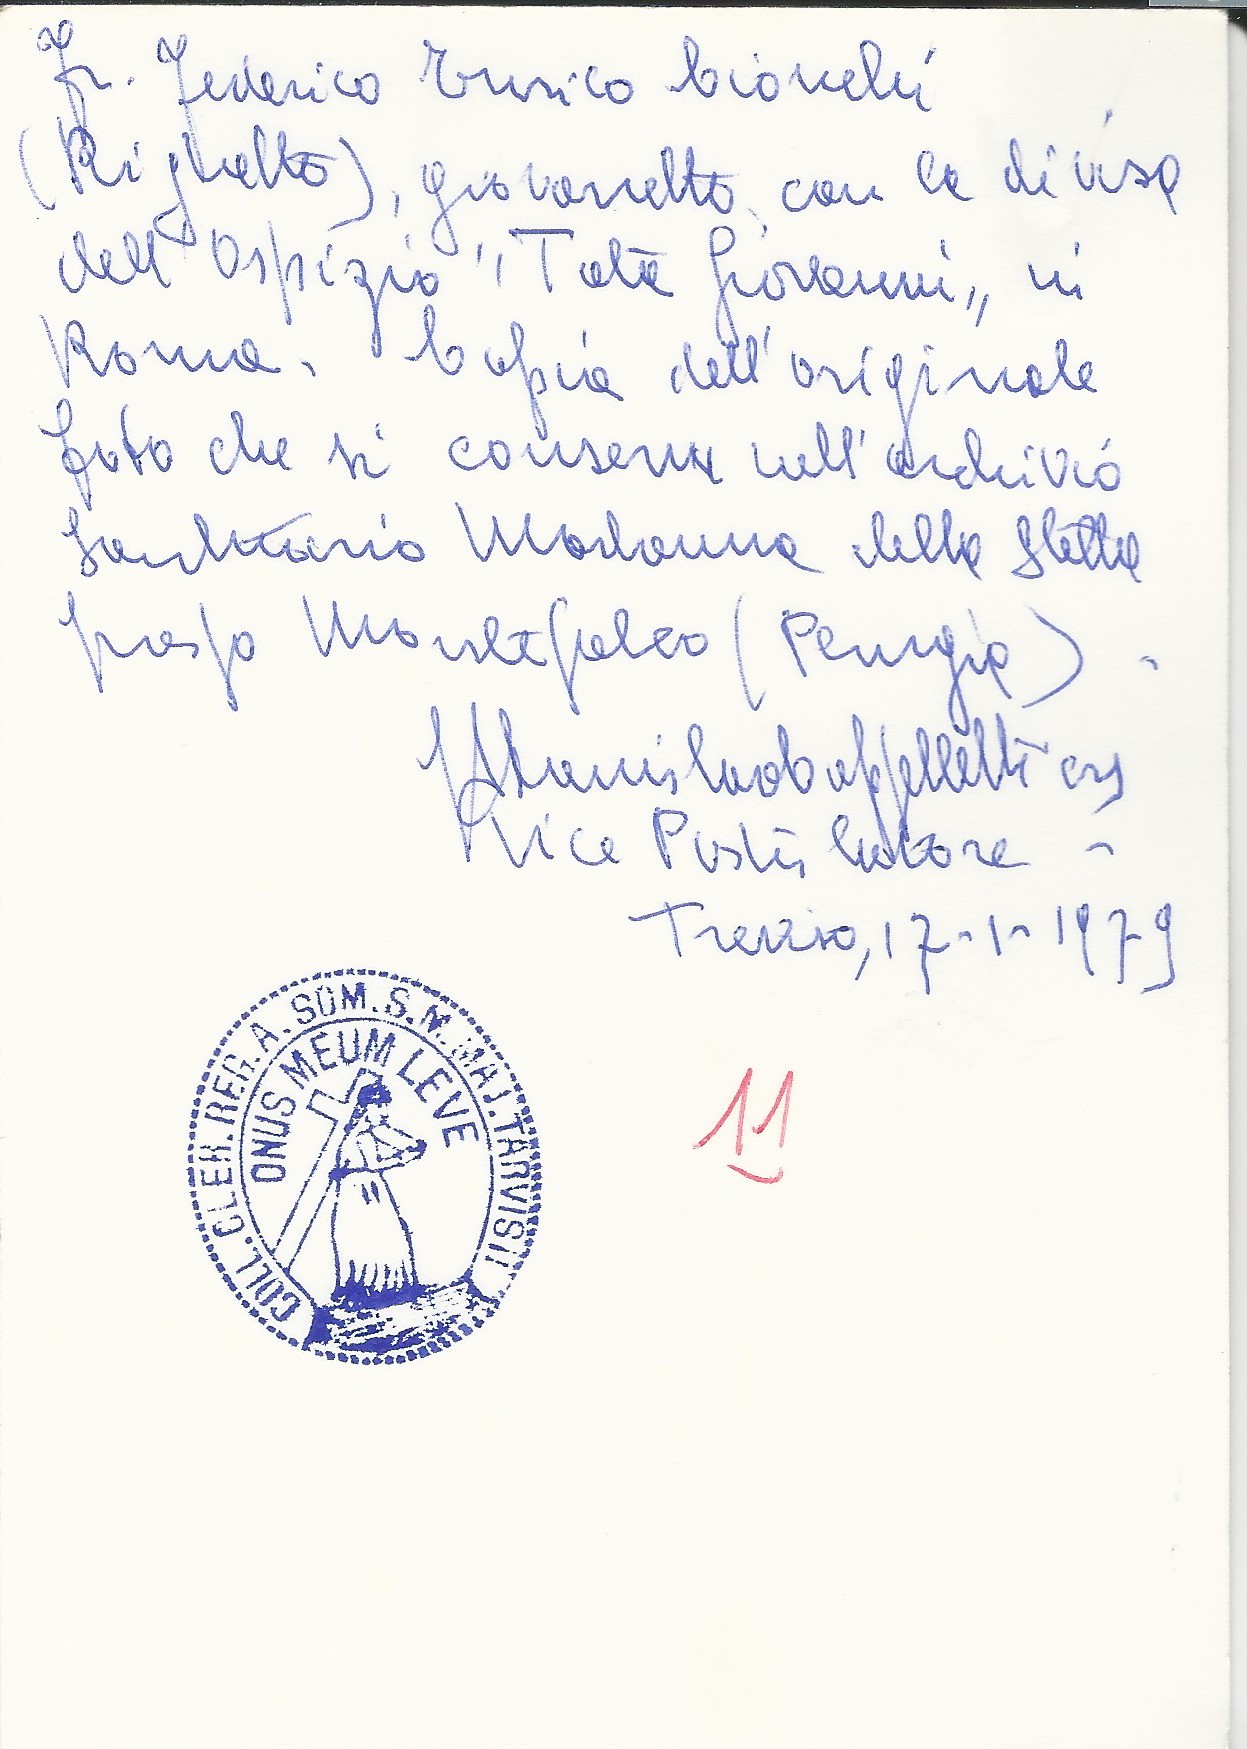 Fr. Federico Enrico Cionchi
(Righetto), giovanetto, con la divisa
dell'Ospizio "Tata Giovanni„ in
Roma. Copia dell'originale
foto che si conserva nell'archivio
Santuario Madonna della Stella
presso Montefalco (Perugia).
P. Stanislao Cappelletti crs
Vice Postulatore -
Treviso, 17-1-1979
COLL. CLER. REG. A. SOM. S. M. MAJ. TARVISII
ONUS MEUM LEVE
11